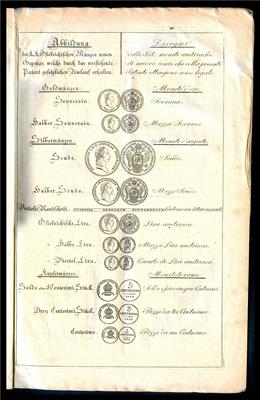 Abbildung
der K.K. Österreichischen Münzen neuen
Gepräges, welche durch das vorstehende
Patent gesetzlichen Umlauf erhalten.
Disegni
delle I.R. monete austriache
di nuovo conio, che colla presente
Patente ottengono corso legale.
Goldmünzen. Monete d'oro.
Souverain. Sovrana.
Halber Souverain. Mezza Sovrana.
Silbermünzen. Monete d'argento.
Scudo. Scudo.
Halber Scudo. Mezzo Scudo.
Österreichische Lira. Lira austriaca.
Halbe Lira. Mezza Lira austriaca.
Viertel Lira. Quarto di Lira austriaca.
Kupfermünzen. Monete di rame.
Soldo oder 5 Centesimi Stück. Soldo ossia cinque Centesimi.
5
CENTESIMI
Drey Centesimi Stück. Pezzo da tre Centesimi.
3
CENTESIMI
Centesimo. Pezzo da un Centesimo.
1